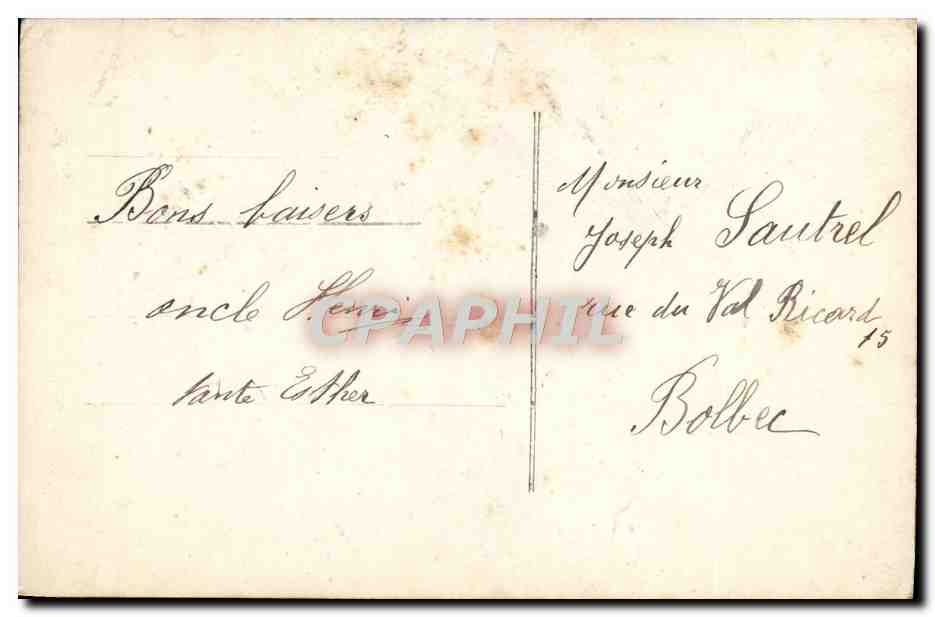 Bons baisers
oncle Henri
tante Esther
Monsieur
Joseph Sautrel
rue du Val Ricard
15
Bolbec
CPAPHIL